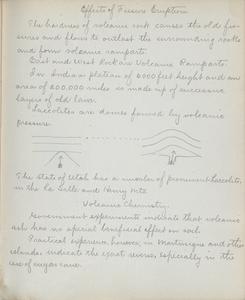 Effects of Fissure Eruption
The hardness of volcanic rock causes the old fis-
sures and flows to outlast the surrounding rocks
and form volcanic ramparts.
East and West Rock are Volcanic Ramparts.
In Indian plateau of 6000 feet height and an
area of 200,000 miles is made up of successive
layers of old lava.
Laccolites are domes formed by volcanic
pressure.
The state of Utah has a number of prominent Laccolites,
in the La Salle and Henry Mts.
Volcanic Chemistry.
Government experiments indicate that volcanic
ash has no special beneficial effect on soil.
Practical experience, however, in Martinique and other
islands, indicate the exact reverse, especially in the
case of sugar cane.